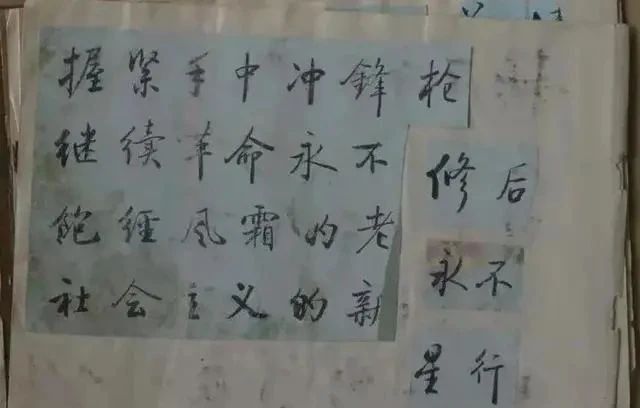 握紧手中冲鋒枪
继续革命永不
饱经风霜的老
社会主义的新
修后
永不
星行